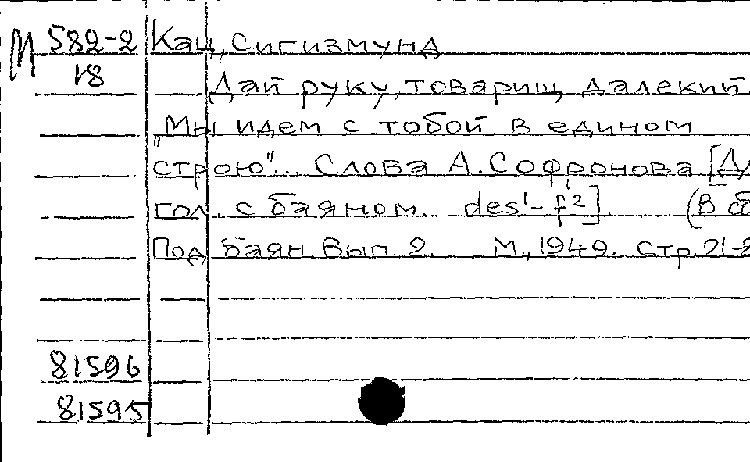 М 582-2 Кац, Сигизмунд
18 Дай руку, товарищ далекий
„Мы идем с тобой в едином
строю". Слова А. Софронова [Дл
гол. с баяном. des¹-f²] (В сб
Под баян Вып 2. М, 1949. Стр. 21-2
81596
81595